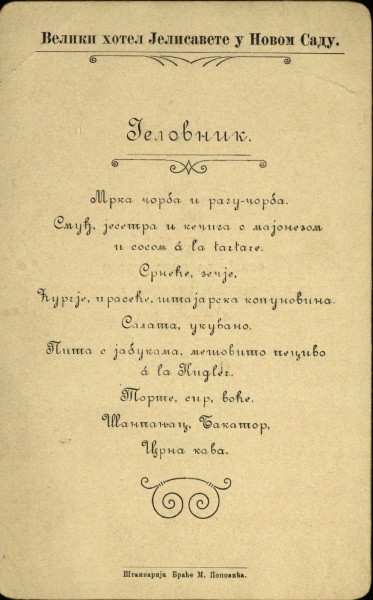 Велики хотел Јелисавете у Новом Саду.
Јеловник.
Мрка чорба и рагу-чорба.
Смуђ, јесетра и кечига с мајонезом
и сосом á la tartare.
Срнеће, зечје,
Ћургје, прасеће, штајарска копуновина.
Салата, укувано,
Пита с јабукама, мешовито пециво
á la Kugler.
Торте, сир, воће.
Шампањац, Бакатор,
Црна кава.
Штампарија Браће М. Поповића.